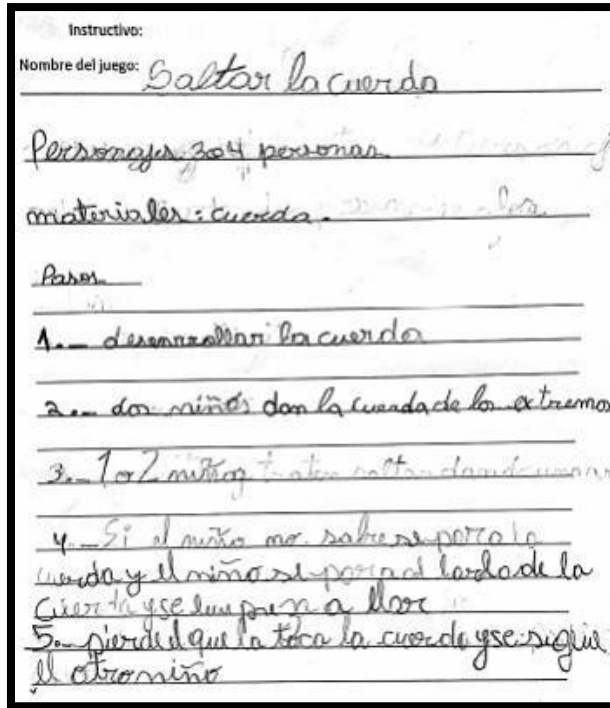 Instructivo:
Nombre del juego: Saltar la cuerda
Personajes 3 o 4 personas
materiales: cuerda.
Pasos
1.- desenrollar la cuerda
2.- dos niños dan la cuerda de los extremos
3.- 1 o 2 niños saltando
4.- Si el niño no sabe se para la
cuerda y el niño se para al lado de la
y se a
5.- pierde el que la toca la cuerda y se sigue
el otro niño